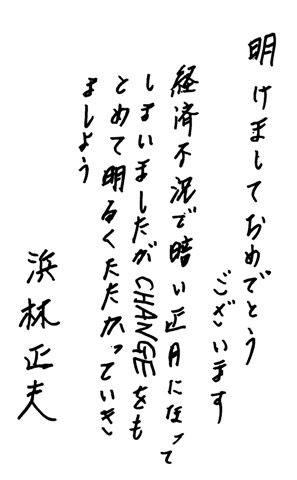 明けましておめでとう
ございます
経済不況で暗い正月になって
しまいましたがCHANGEをも
とめて明るくたたかっていき
ましょう
浜林正夫